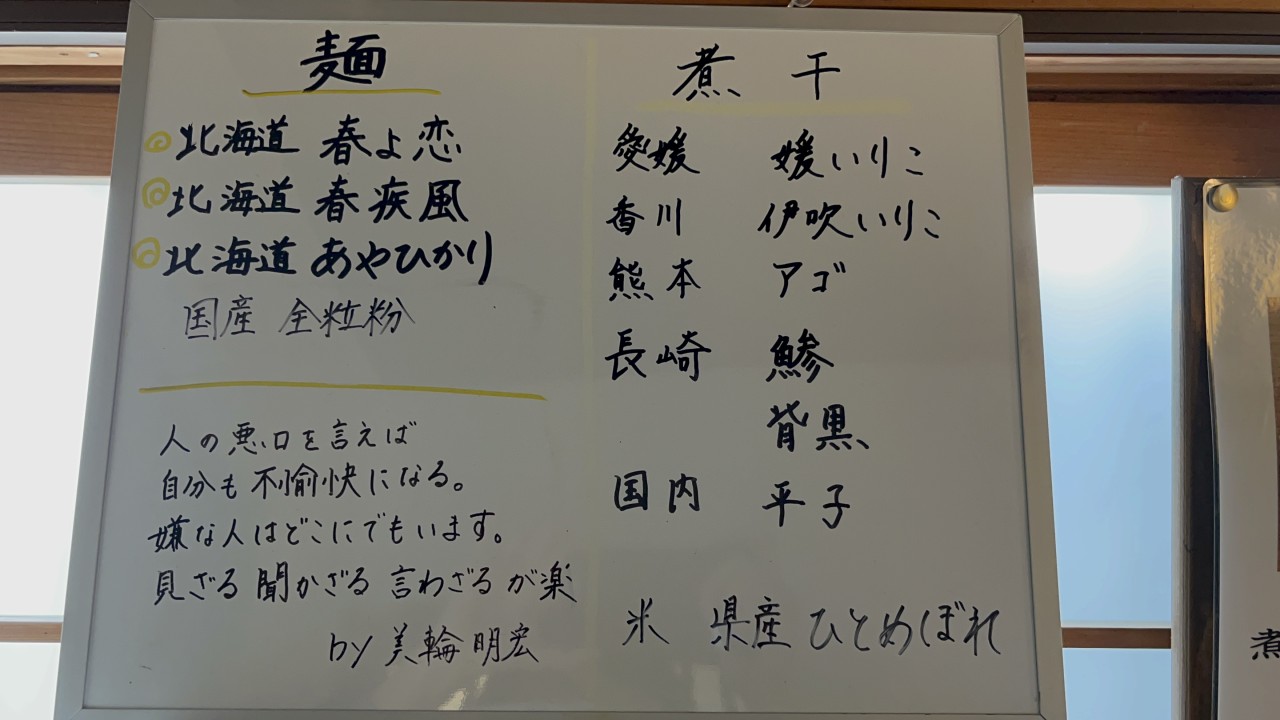 麺
北海道 春よ恋
北海道 春疾風
北海道 あやひかり
国産 全粒粉
人の悪口を言えば
自分も不愉快になる。
嫌な人はどこにでもいます。
見ざる 聞かざる 言わざる が楽
by 美輪明宏
煮干
愛媛 媛いりこ
香川 伊吹いりこ
熊本 アゴ
長崎 鯵
背黒
国内 平子
米 県産 ひとめぼれ
煮